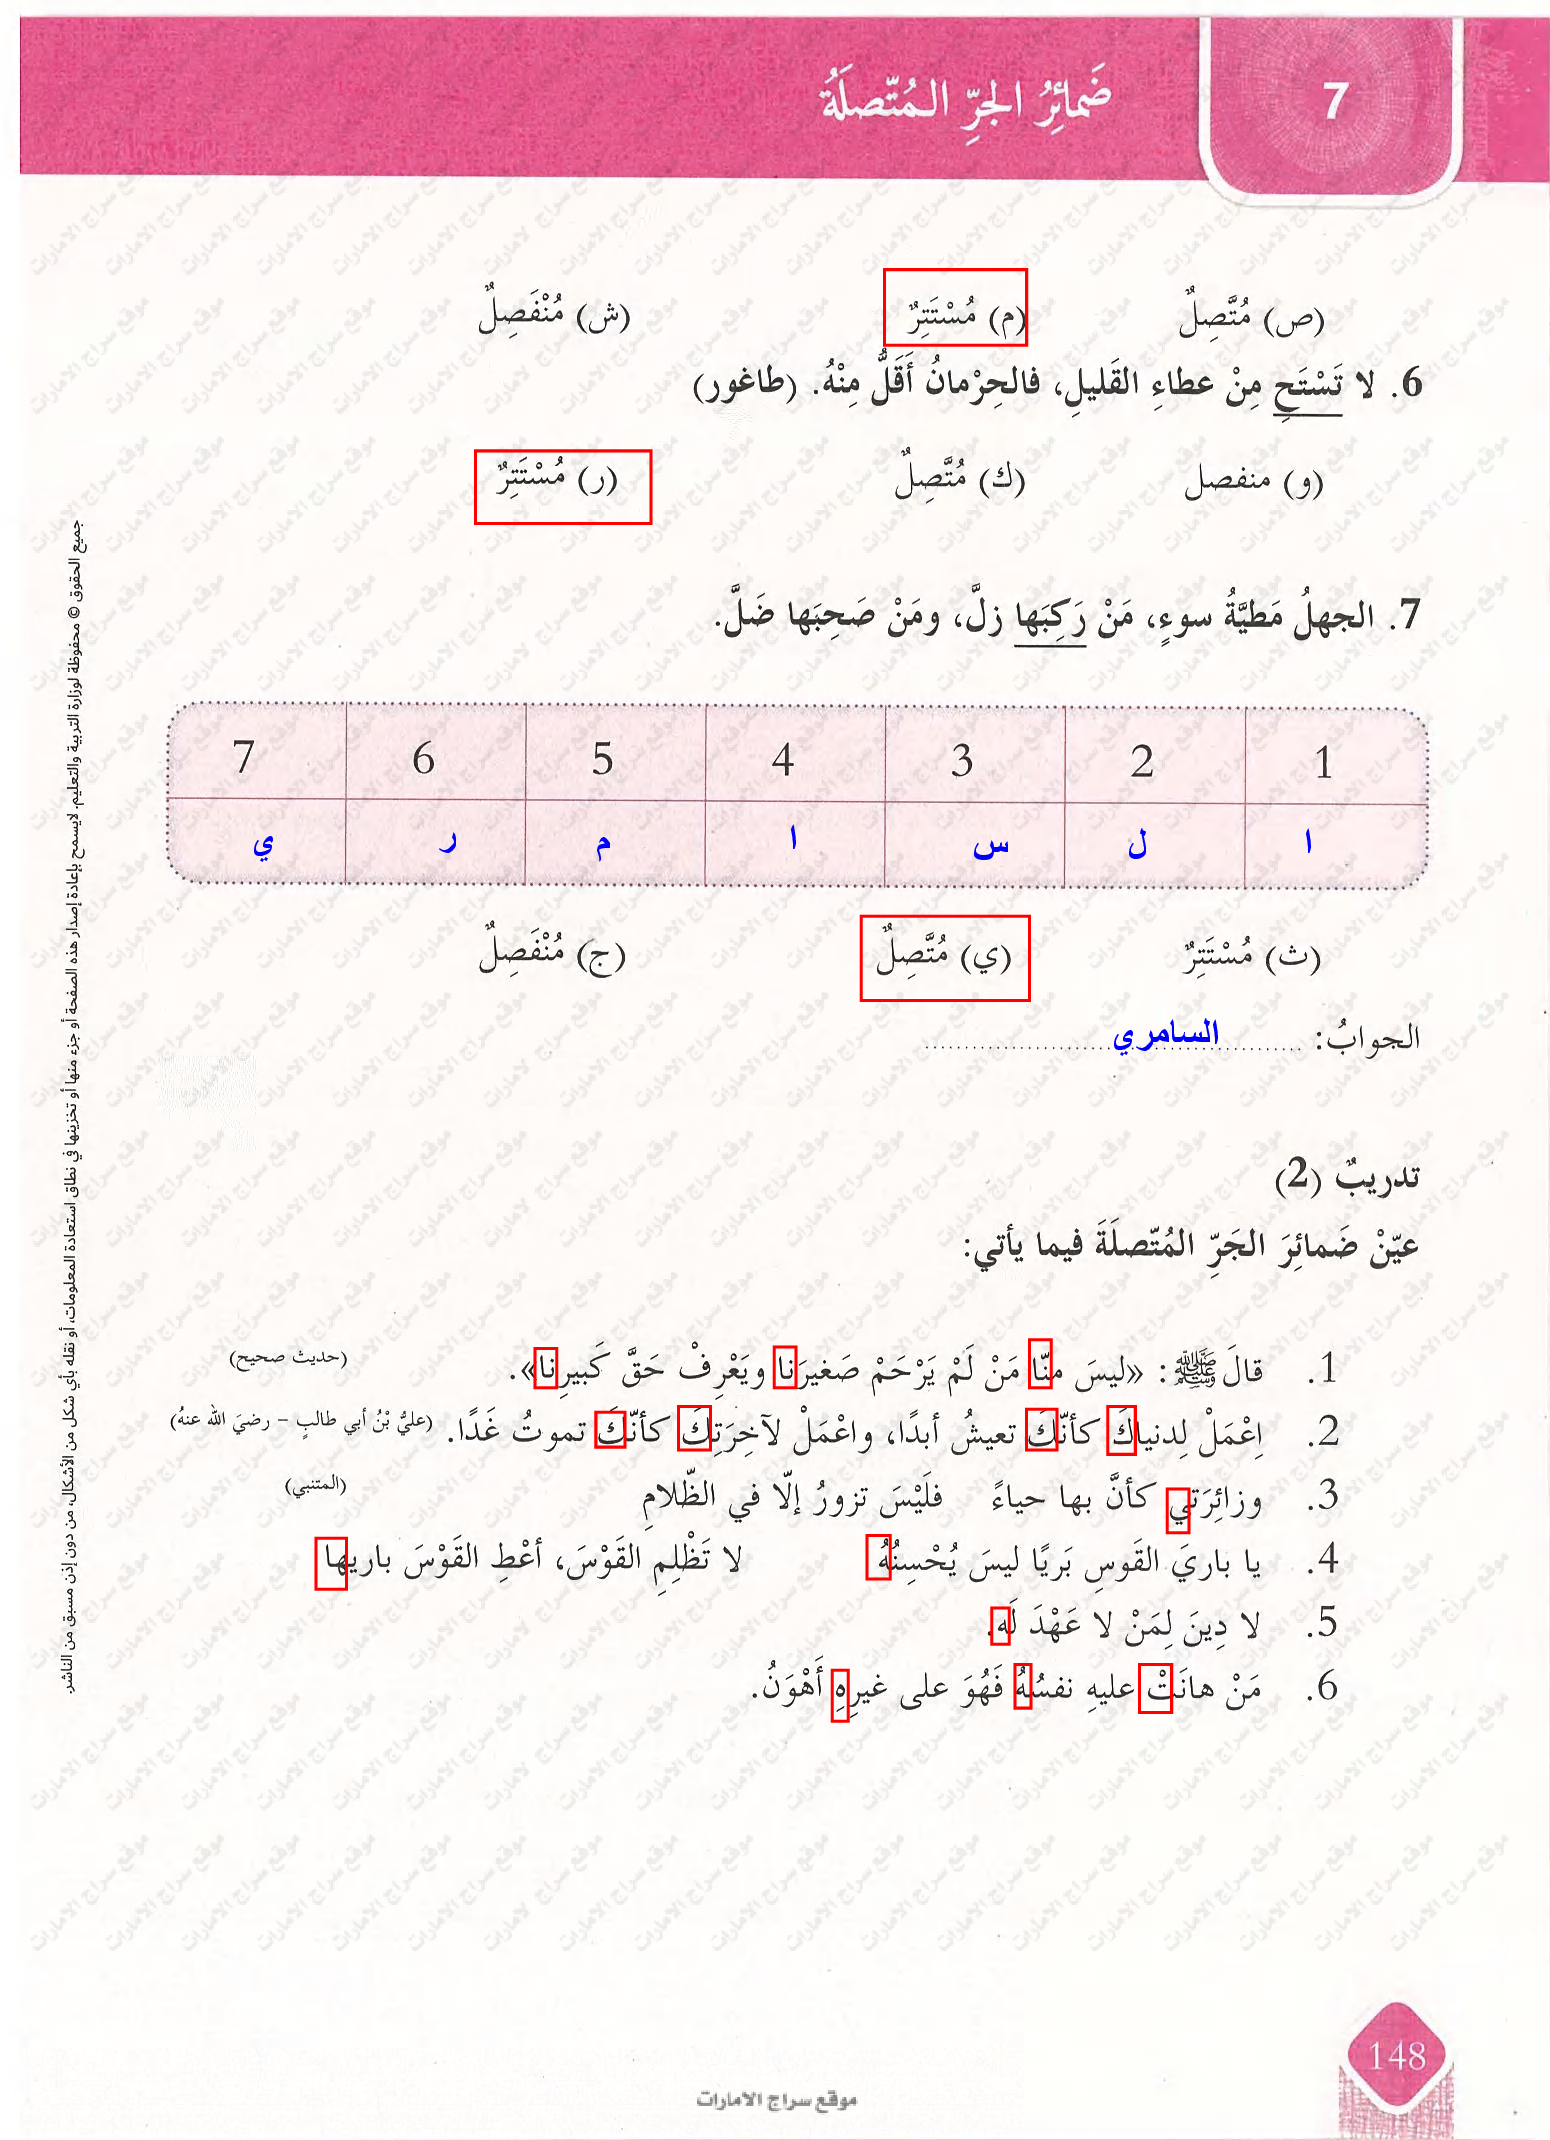 7
ضَمائِرُ الجَرِّ المُتّصلَةُ
(ص) مُتَّصِلٌ (م) مُسْتَتِرٌ (ش) مُنْفَصِلٌ
6. لا تَسْتَحِ مِنْ عطاءِ القَليلِ، فالحِرْمانُ أَقَلُّ مِنْهُ. (طاغور)
(و) منفصل (ك) مُتَّصِلٌ (ر) مُسْتَتِرٌ
7. الجهلُ مَطيَّةُ سوءٍ، مَنْ رَكِبَها زلَّ، ومَنْ صَحِبَها ضَلَّ.
1 2 3 4 5 6 7
ا ل س ا م ر ي
(ث) مُسْتَتِرٌ (ي) مُتَّصِلٌ (ج) مُنْفَصِلٌ
الجوابُ: السامري
تدريبٌ (2)
عيّنْ ضَمائِرَ الجَرِّ المُتّصلَةَ فيما يأتي:
1. قالَ ﷺ: «ليسَ منّا مَنْ لَمْ يَرْحَمْ صَغيرَنا ويَعْرِفْ حَقَّ كَبيرِنا». (حديث صحيح)
2. اِعْمَلْ لِدنياكَ كأنّكَ تعيشُ أبدًا، واعْمَلْ لآخِرَتِكَ كأنّكَ تموتُ غَدًا. (عليُّ بْنُ أبي طالبٍ - رضيَ الله عنهُ)
3. وزائِرَتي كأنَّ بها حياءً فلَيْسَ تزورُ إلّا في الظّلامِ (المتنبي)
4. يا باريَ القَوسِ بَريًا ليسَ يُحْسِنُهُ لا تَظْلِمِ القَوْسَ، أعْطِ القَوْسَ باريها
5. لا دِينَ لِمَنْ لا عَهْدَ لَه.
6. مَنْ هانَتْ عليهِ نفسُهُ فَهُوَ على غيرِهِ أَهْوَنُ.
جميع الحقوق © محفوظة لوزارة التربية والتعليم. لايسمح بإعادة إصدار هذه الصفحة أو جزء منها أو تخزينها في نطاق استعادة المعلومات، أو نقله بأي شكل من الأشكال، من دون إذن مسبق من الناشر.
148
موقع سراج الامارات